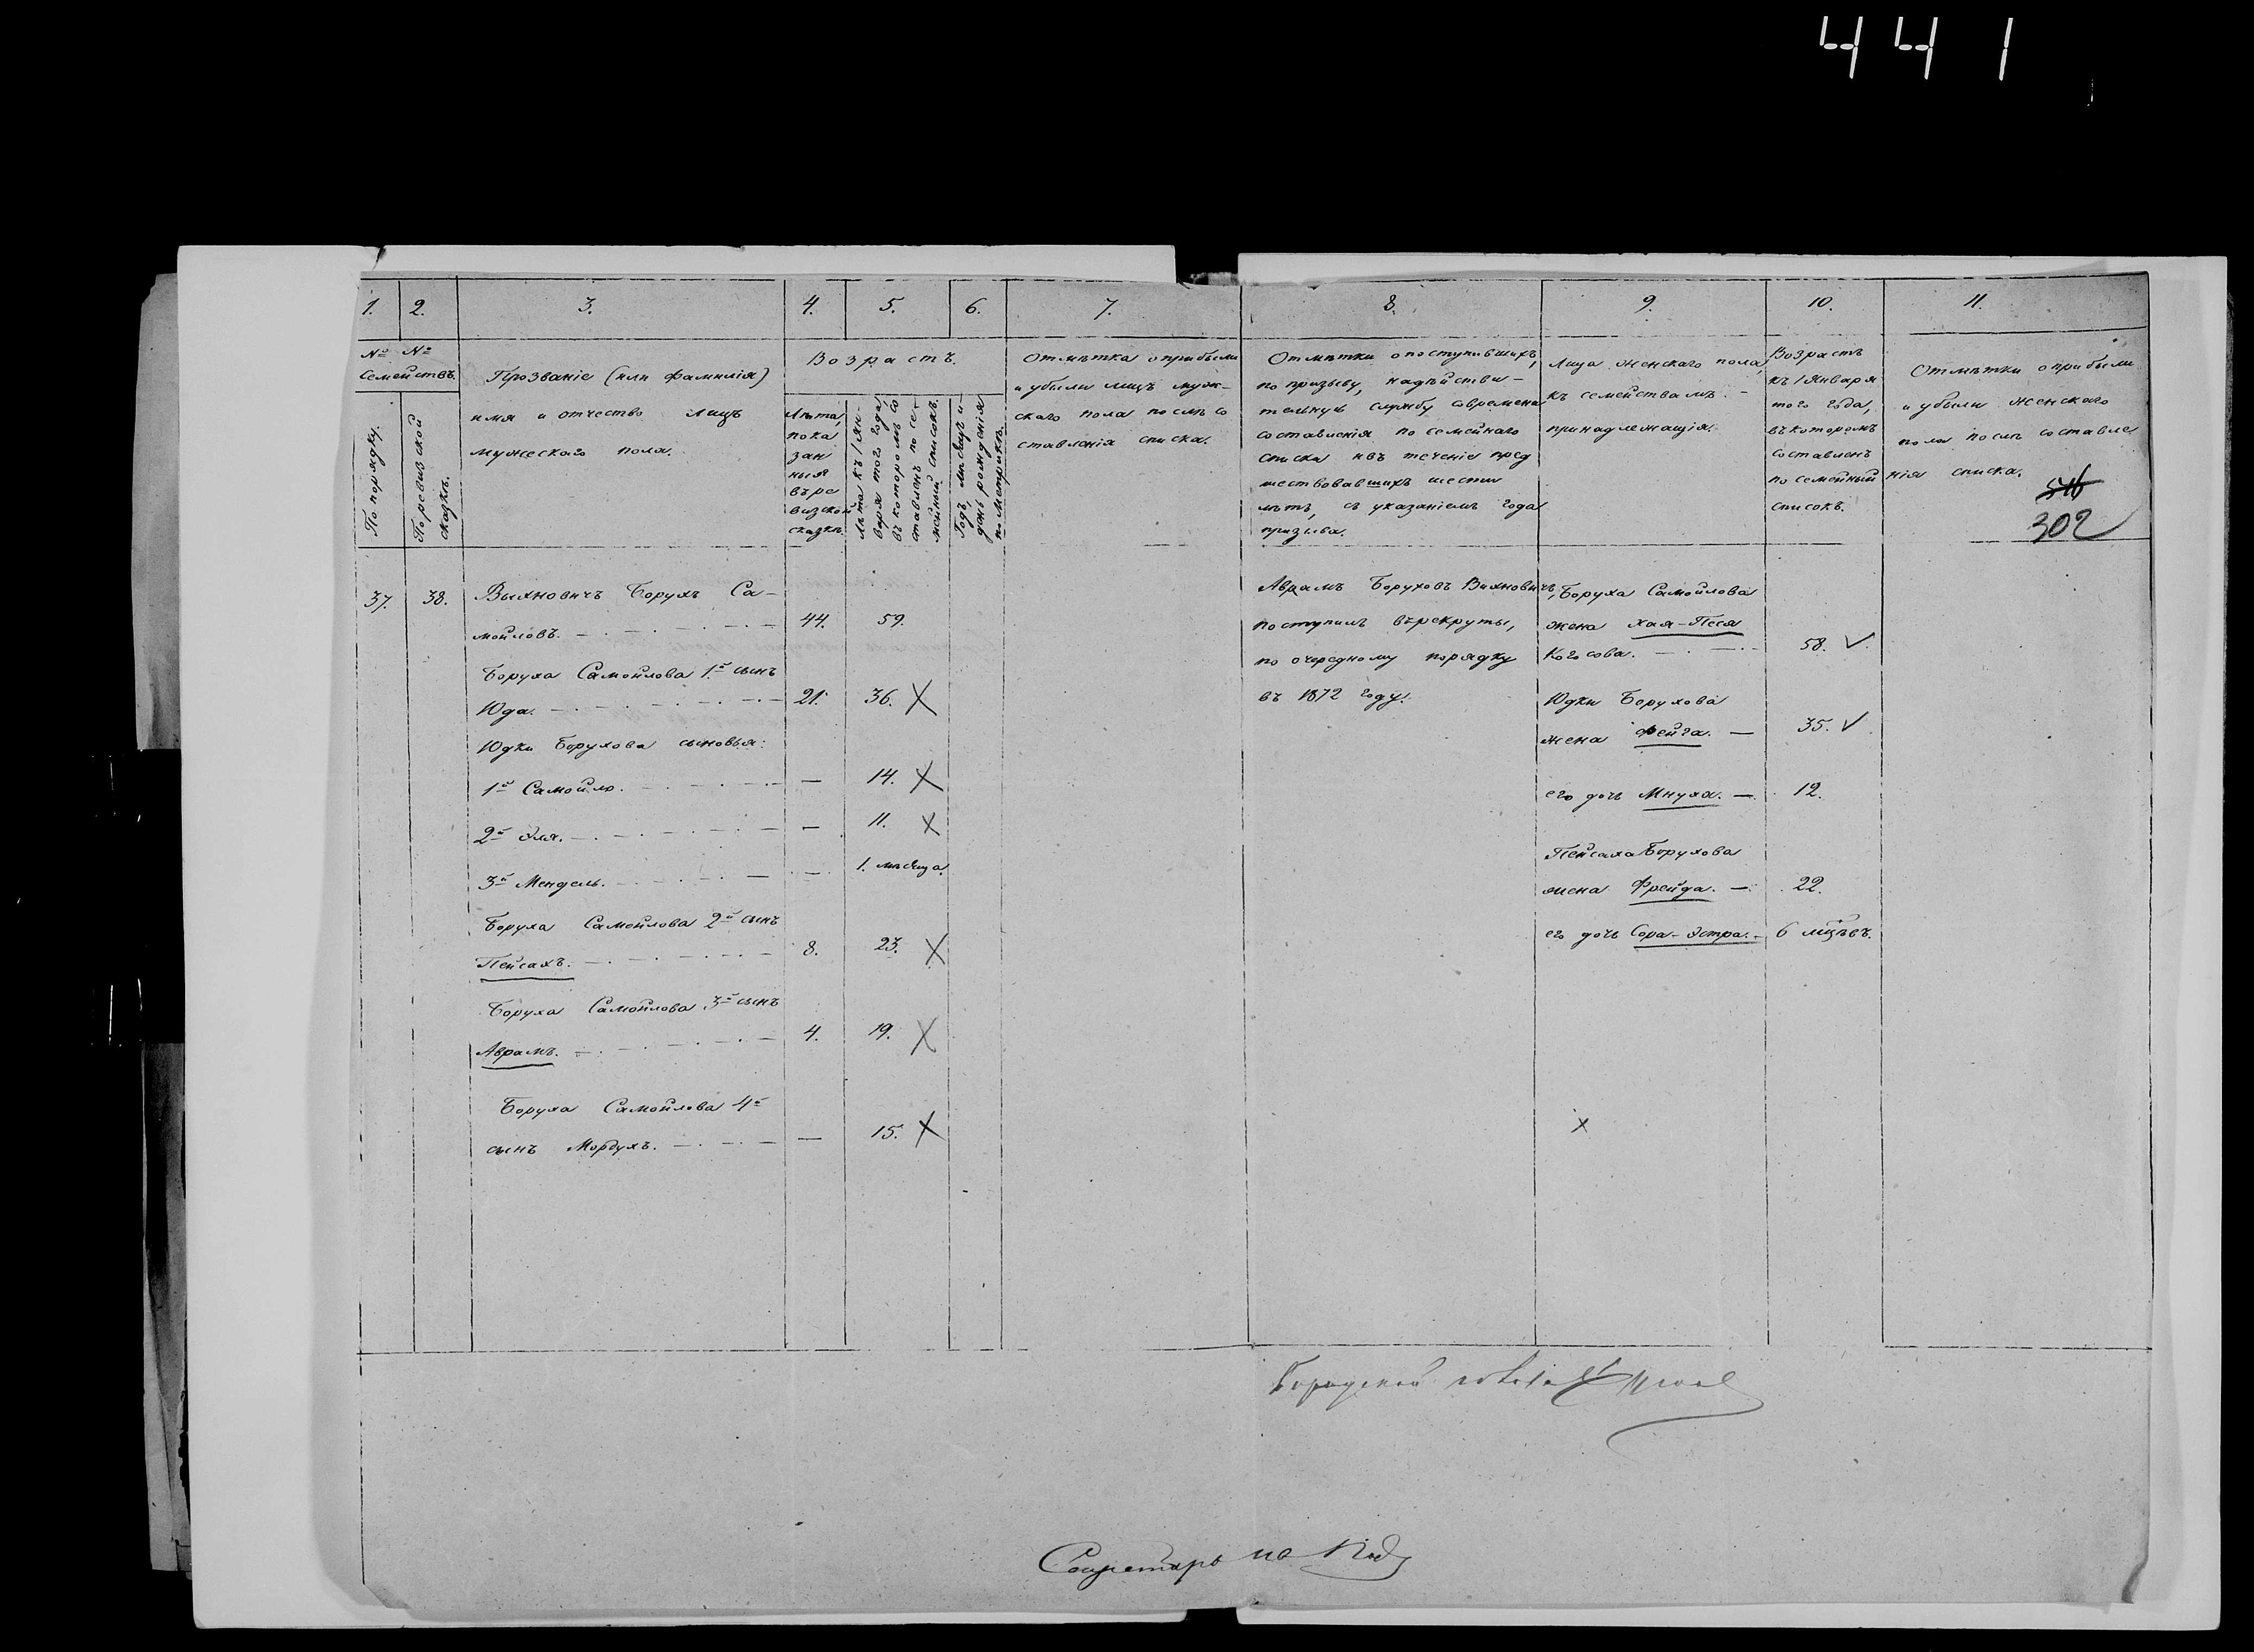 441
1. 2. 3. 4. 5. 6. 7. 8. 9. 10. 11.
№ №
Семействъ.
По порядку.
По ревизской
сказкѣ.
Прозваніе (или фамилія)
имя и отчество лицъ
мужескаго пола.
Возрастъ.
Лѣта,
пока
зан
ныя
въ ре
визской
сказкѣ.
Лѣта къ 1 Ян-
варя того года,
въ которомъ со
ставленъ посе-
мейный списокъ.
Годъ, мѣсяцъ и
день рожденія
по метрикѣ.
Отмѣтка о прибыли
и убыли лицъ муж-
скаго пола послѣ со
ставленія списка.
Отмѣтки о поступившихъ,
по призыву, на дѣйстви-
тельную службу со времени
составленія посемейнаго
списка и въ теченіе пред
шествовавшихъ шести
лѣтъ, съ указаніемъ года
призыва.
Лица женскаго пола,
къ семействамъ. -
принадлежащія.
Возрастъ
къ 1 Января
того года,
въ которомъ
составленъ
посемейный
списокъ.
Отмѣтки о прибыли
и убыли женскаго
пола послѣ составле
нія списка.
302
37. 38. Выхновичъ Борухъ Са-
мойловъ. 44. 59.
Боруха Самойлова 1й сынъ
Юда. 21. 36. X
Юдки Борухова сыновья:
1й Самойло. — 14. X
2й Эля. — 11. X
3й Мендель. — 1. мѣсяца
Боруха Самойлова 2й сынъ
Пейсахъ. 8. 23. X
Боруха Самойлова 3й сынъ
Аврамъ. 4. 19. X
Боруха Самойлова 4й
сынъ Мордухъ. — 15. X
Аврамъ Боруховъ Вихновичъ,
поступилъ въ рекруты,
по очередному порядку
въ 1872 году.
Боруха Самойлова
жена Хая-Песя
Когосова. 58. ✓
Юдки Борухова
жена Фейга. — 35. ✓
его дочь Мнуха. — 12.
Пейсаха Борухова
жена Фрейда. — 22.
его дочь Сора-Эстра. - 6 мцѣвъ.
X
Городской голова
Секретарь